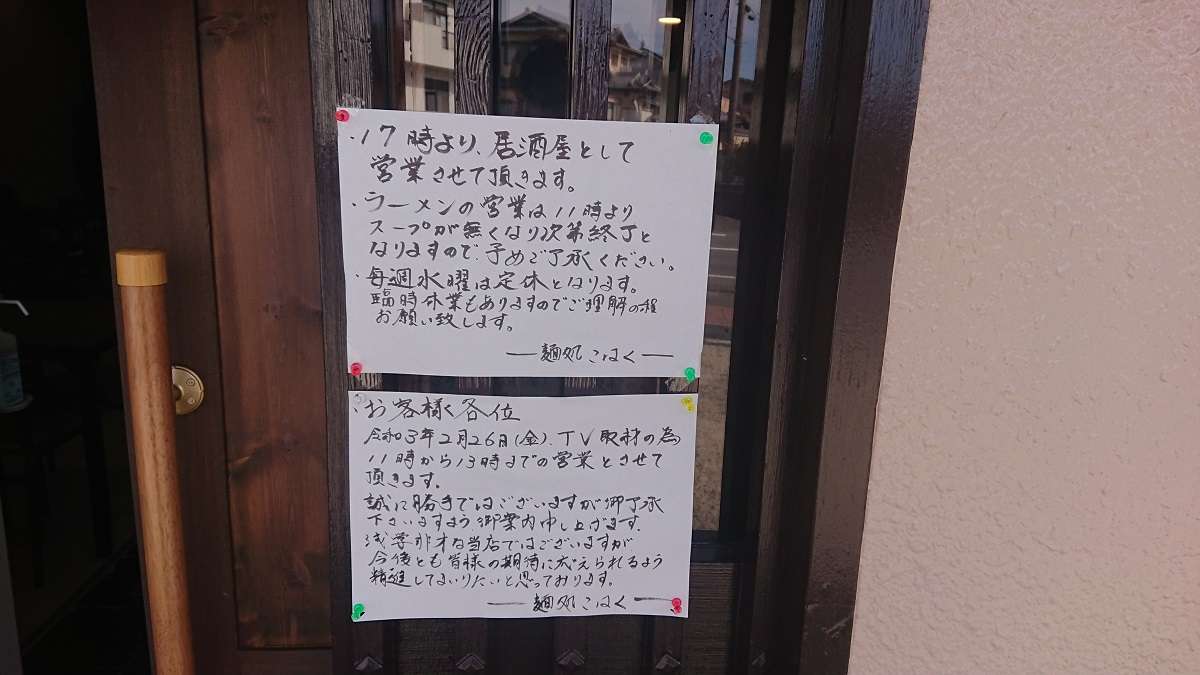 ・17時より、居酒屋として
営業させて頂きます。
・ラーメンの営業は11時より
スープが無くなり次第終了と
なりますので、予めご了承ください。
・毎週水曜は定休となります。
臨時休業もありますのでご理解の程
お願い致します。
―麺処こはく―
・お客様各位
令和3年2月26日(金)、TV取材の為
11時から13時までの営業とさせて
頂きます。
誠に勝手ではございますが御了承
下さいますよう御案内申し上げます。
浅学非才な当店ではございますが
今後とも皆様の期待に応えられるよう
精進してまいりたいと思っております。
―麺処こはく―